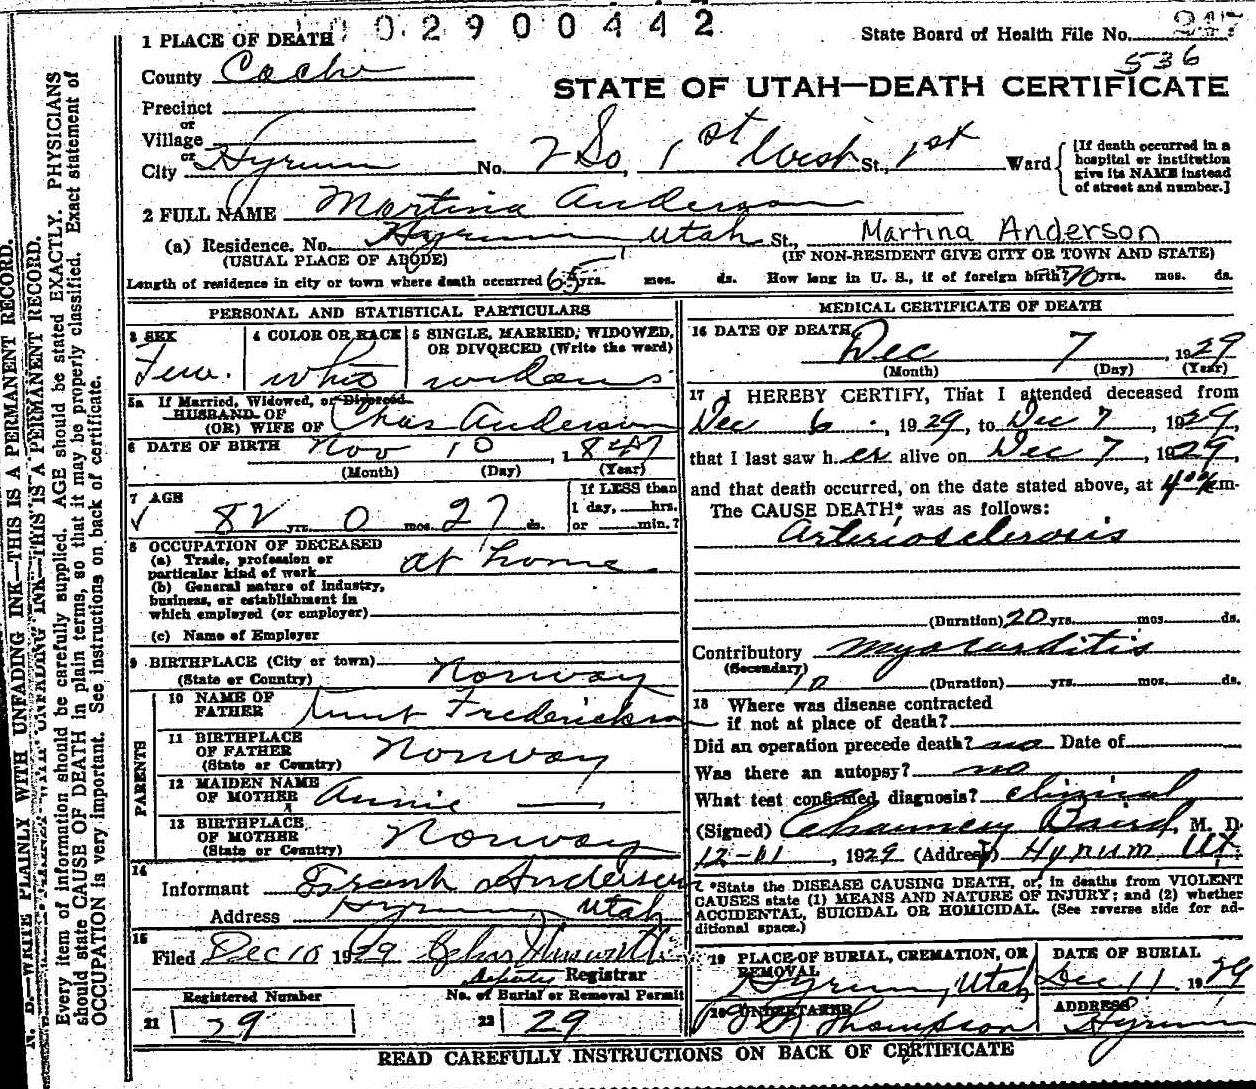 0 0 2 9 0 0 4 4 2
State Board of Health File No. 247
536
STATE OF UTAH—DEATH CERTIFICATE
1 PLACE OF DEATH
County Cache
Precinct
or
Village
or
City Hyrum No. 2 So, 1st West St., 1st Ward
[If death occurred in a
hospital or institution
give its NAME instead
of street and number.]
2 FULL NAME Martina Anderson
(a) Residence. No. Hyrum, Utah St., Martina Anderson
(USUAL PLACE OF ABODE) (IF NON-RESIDENT GIVE CITY OR TOWN AND STATE)
Length of residence in city or town where death occurred 65 yrs. mos. ds. How long in U. S., if of foreign birth? 70 yrs. mos. ds.
PERSONAL AND STATISTICAL PARTICULARS
3 SEX Fem.
4 COLOR OR RACE White
5 SINGLE, MARRIED, WIDOWED,
OR DIVORCED (Write the word)
widow
5a If Married, Widowed, or Divorced
HUSBAND OF
(OR) WIFE OF Chas Anderson
6 DATE OF BIRTH Nov 10, 1847
(Month) (Day) (Year)
7 AGE
82 yrs. 0 mos. 27 ds.
If LESS than
1 day, hrs.
or min.?
8 OCCUPATION OF DECEASED
(a) Trade, profession or
particular kind of work at home
(b) General nature of industry,
business, or establishment in
which employed (or employer)
(c) Name of Employer
9 BIRTHPLACE (City or town)
(State or Country) Norway
PARENTS
10 NAME OF
FATHER Knut Frederickson
11 BIRTHPLACE
OF FATHER Norway
(State or Country)
12 MAIDEN NAME
OF MOTHER Annie —
13 BIRTHPLACE
OF MOTHER Norway
(State or Country)
14
Informant Frank Anderson
Address Hyrum, Utah
15
Filed Dec 10 1929
Deputy Registrar
Registered Number
21 29
No. of Burial or Removal Permit
22 29
MEDICAL CERTIFICATE OF DEATH
16 DATE OF DEATH
Dec 7, 1929
(Month) (Day) (Year)
17 I HEREBY CERTIFY, That I attended deceased from
Dec 6, 1929, to Dec 7, 1929,
that I last saw her alive on Dec 7, 1929,
and that death occurred, on the date stated above, at m.
The CAUSE DEATH* was as follows:
Arteriosclerosis
(Duration) 20 yrs. mos. ds.
Contributory Myocarditis
(Secondary)
10 (Duration) yrs. mos. ds.
18 Where was disease contracted
if not at place of death?
Did an operation precede death? no Date of
Was there an autopsy? no
What test confirmed diagnosis? clinical
(Signed) Chauncey Baird, M. D.
12-11, 1929 (Address) Hyrum Ut.
*State the DISEASE CAUSING DEATH, or, in deaths from VIOLENT
CAUSES state (1) MEANS AND NATURE OF INJURY; and (2) whether
ACCIDENTAL, SUICIDAL OR HOMICIDAL. (See reverse side for ad-
ditional space.)
19 PLACE OF BURIAL, CREMATION, OR
REMOVAL
Hyrum, Utah
DATE OF BURIAL
Dec 11 1929
20 UNDERTAKER
Thompson
ADDRESS
Hyrum
READ CAREFULLY INSTRUCTIONS ON BACK OF CERTIFICATE
N. B.—WRITE PLAINLY WITH UNFADING INK—THIS IS A PERMANENT RECORD.
Every item of information should be carefully supplied. AGE should be stated EXACTLY. PHYSICIANS
should state CAUSE OF DEATH in plain terms, so that it may be properly classified. Exact statement of
OCCUPATION is very important. See instructions on back of certificate.